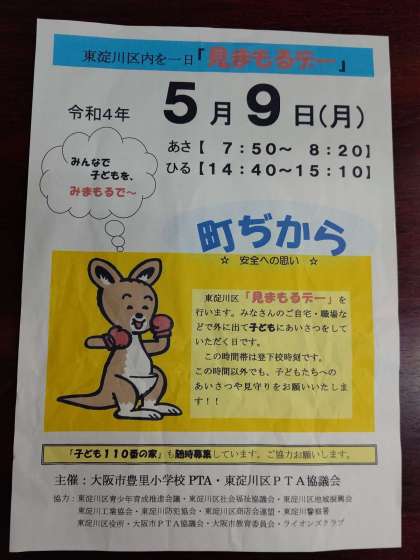 東淀川区内を一日「見まもるデー」
令和4年 5月9日(月)
あさ【 7:50～ 8:20】
ひる【14:40～15:10】
みんなで
子どもを、
みまもるで～
町ぢから
☆ 安全への思い ☆
東淀川区「見まもるデー」を
行います。みなさんのご自宅・職場な
どで外に出て子どもにあいさつをして
いただく日です。
この時間帯は登下校時刻です。
この時間以外でも、子どもたちへの
あいさつや見守りをお願いいたしま
す！！
「子ども110番の家」も随時募集しています。ご協力お願いします。
主催：大阪市豊里小学校PTA・東淀川区PTA協議会
協力：東淀川区青少年育成推進会議・東淀川区社会福祉協議会・東淀川区地域振興会
東淀川工業協会・東淀川防犯協会・東淀川区商店会連盟・東淀川警察署
東淀川区役所・大阪市PTA協議会・大阪市教育委員会・ライオンズクラブ